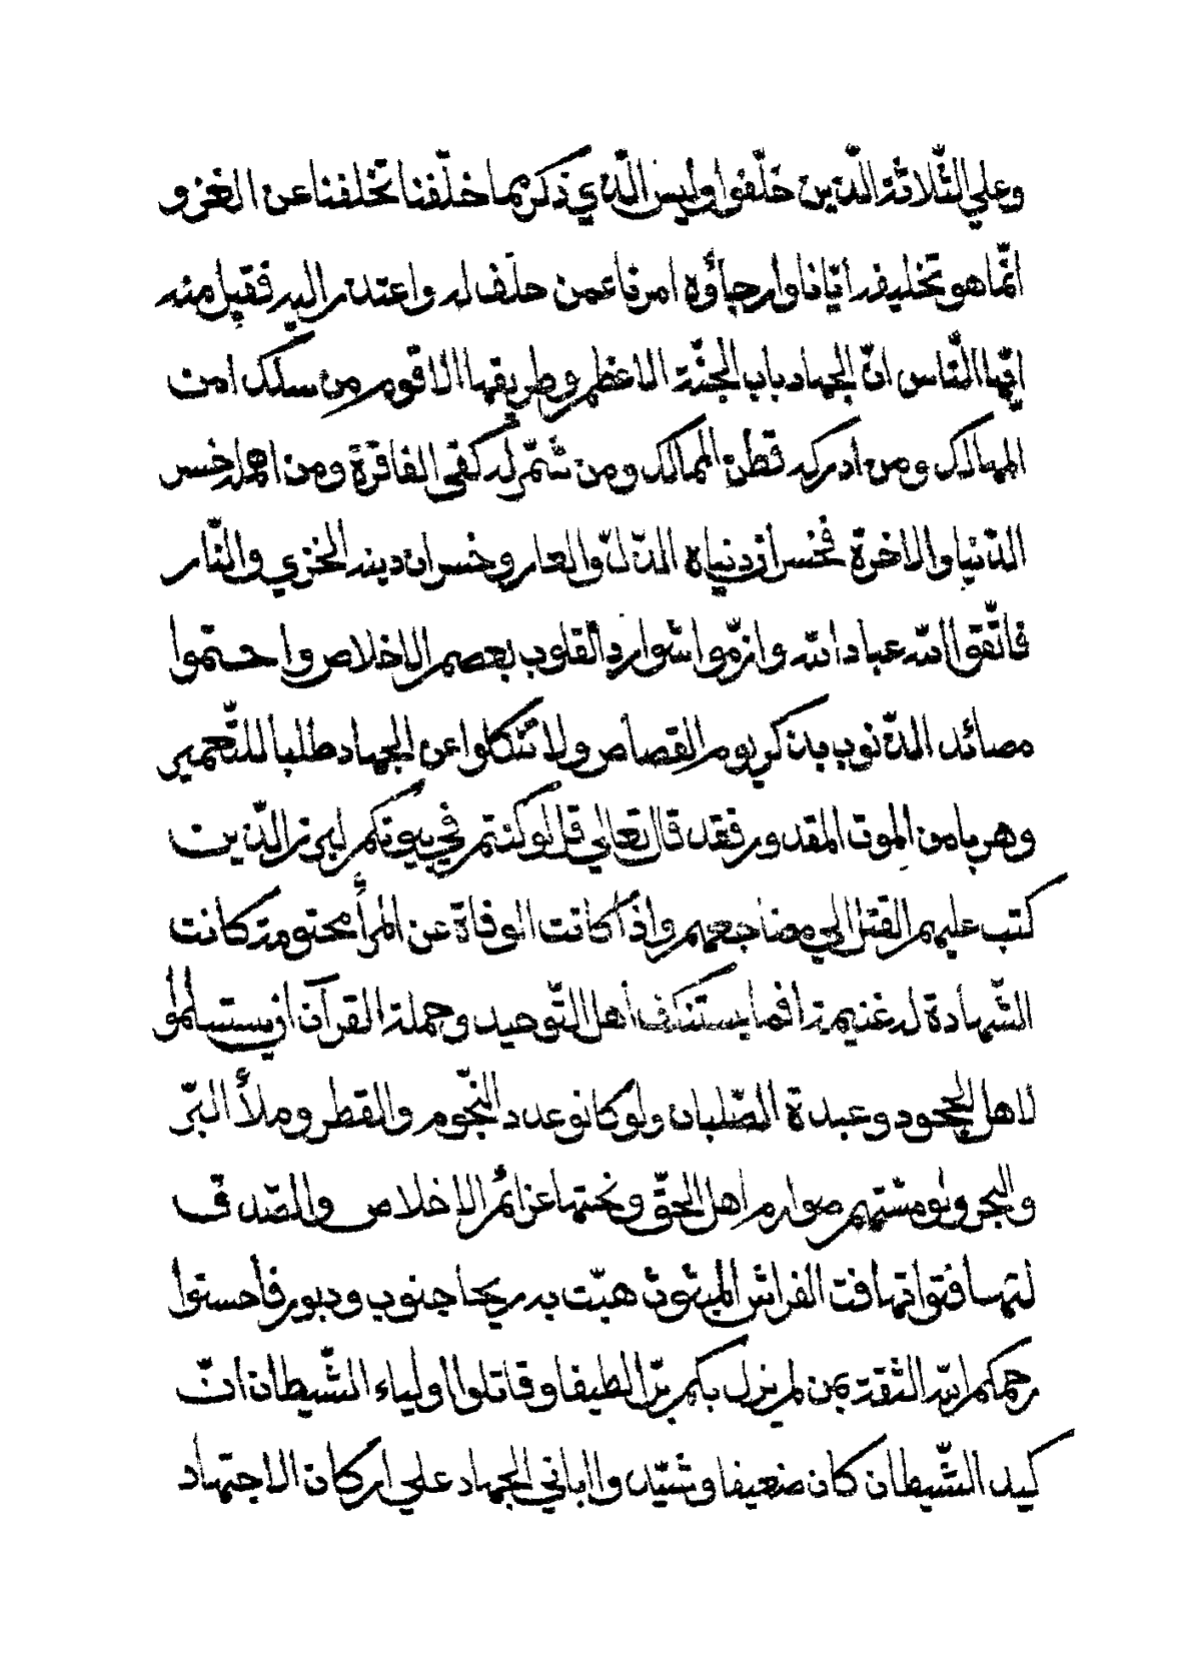 وعلي الثّلاثة الّذين خلّفوا وليس الّذي ذكر بما خلّفنا تخلفنا عن الغزو
انّما هو تخليفه ايّانا وارجاؤه امرنا عمن حلف له واعتذر اليه فقبل منه
ايّها النّاس انّ الجهاد باب الجنّة الاعظم وطريقها الاقوم من سلكه امن
المهالك ومن ادركه قطن الممالك ومن شمّر له كفي الفاقرة ومن اهمله خسر
الدّنيا والاخرة فخسران دنياه الذلّ والعار وخسران دينه الخزي والنّار
فاتّقوا الله عباد الله وازمّوا شوارد القلوب بعصم الاخلاص واحسموا
مصائد الذّنوب بذكر يوم القصاص ولا تنكلوا عن الجهاد طلبا للتّعمير
وهربا من الموت المقدور فقد قال تعالي قل لو كنتم في بيوتكم لبرز الّذين
كتب عليهم القتل الي مضاجعهم واذا كانت الوفاة عن المرأ محتومة كانت
الشّهادة له غنيمة أفما يستنكف أهل التّوحيد وحملة القرآن ان يستسلموا
لاهل الجحود وعبدة الصّلبان ولو كانو عدد النّجوم والقطر وملأ البرّ
والبحر ولو مسّتهم صوارم اهل الحقّ ونحتها عزائم الاخلاص والصّدق
لتهافتوا تهافت الفراش المبثوث هبّت به ريحا جنوب ودبور فأحسنوا
رحمكم الله الثقة بمن لم يزل بكم برّا لطيفا وقاتلوا اولياء الشّيطان انّ
كيد الشّيطان كان ضعيفا وشيّدوا اباني الجهاد علي اركان الاجتهاد